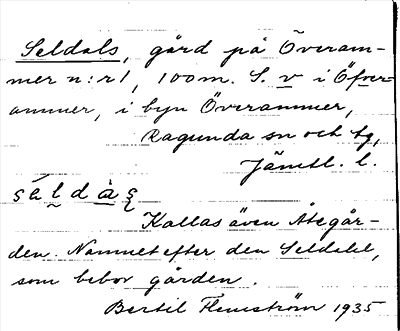 Seldals, gård på Överam-
mer n:r 1, 100 m. S. v i Öfver-
ammer, i byn Överammer,
Ragunda sn och tg,
Jämtl. l.
Kallas även Åtegår-
den. Namnet efter den Seldahl,
som bebor gården.
Bertil Flemström 1935